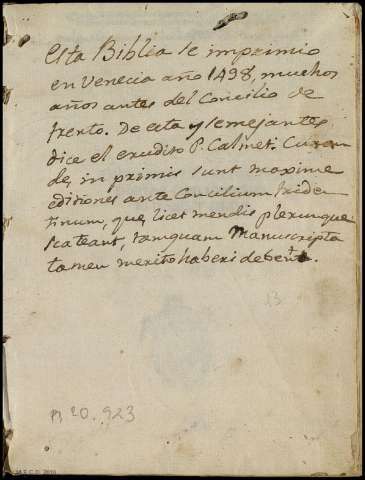 Esta Biblia se imprimio
en Venecia año 1498, muchos
años antes del Concilio de
trento. De esta y semejantes
dice el erudito P. Calmet. Curan
dę in primis sunt maxime
editiones ante Concilium triden
tinum, quę licet mendis plerunque
scateant, tamquam Manuscripta
tamen merito haberi debent.
13
923